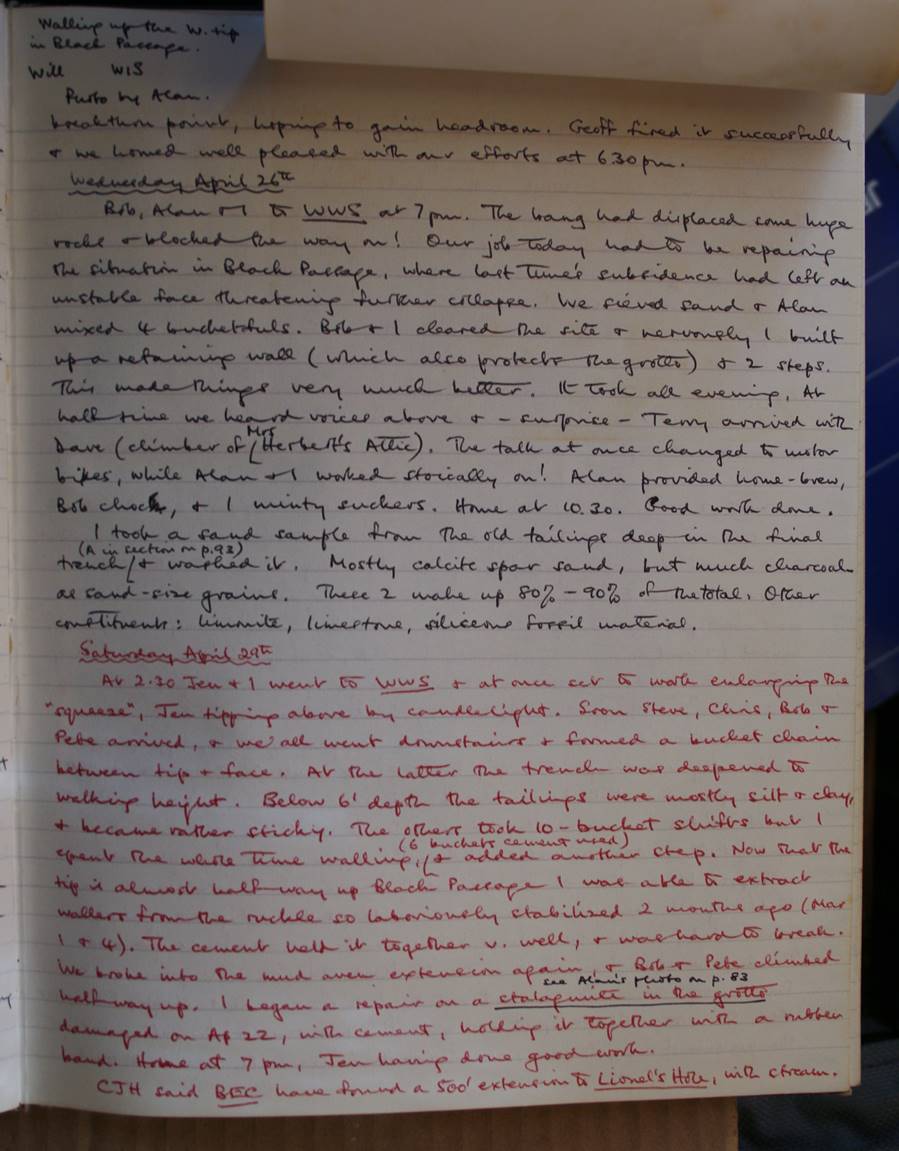 Walling up the W. tip
in Black Passage.
Will WIS
Photo by Alan.
breakthro point, hoping to gain headroom. Geoff fired it successfully
& we homed well pleased with our efforts at 6.30 pm.
Wednesday April 26th
Bob, Alan & I to WWS at 7 pm. The bang had displaced some huge
rocks & blocked the way on! Our job today had to be repairing
the situation in Black Passage, where last time's subsidence had left an
unstable face threatening further collapse. We sieved sand & Alan
mixed 4 bucketfuls. Bob & I cleared the site & nervously I built
up a retaining wall (which also protects the grotto) & 2 steps.
This made things very much better. It took all evening. At
half-time we heard voices above & - surprise - Terry arrived with
Dave (climber of Mrs Herbert's Attic). The talk at once changed to motor
bikes, while Alan & I worked stoically on! Alan provided home-brew,
Bob chock, & I minty suckers. Home at 10.30. Good work done.
I took a sand sample from the old tailings deep in the final
(A in section on p.93)
trench & washed it. Mostly calcite spar sand, but much charcoal
as sand-size grains. These 2 make up 80% - 90% of the total. Other
constituents: limonite, limestone, siliceous fossil material.
Saturday April 29th
At 2.30 Jen & I went to WWS & at once set to work enlarging the
"squeeze", Jen tipping above by candlelight. Soon Steve, Chris, Bob &
Pete arrived, & we all went downstairs & formed a bucket chain
between tip & face. At the latter the trench was deepened to
walking height. Below 6' depth the tailings were mostly silt & clay,
& became rather sticky. The others took 10-bucket shifts but I
(6 buckets cement used)
spent the whole time walling, & added another step. Now that the
tip is almost half way up Black Passage I was able to extract
wallers from the ruckle so laboriously stabilized 2 months ago (Mar
1 & 4). The cement held it together v. well, & was hard to break.
We broke into the mud aven extension again, & Bob & Pete climbed
see Alan's photo on p. 83
half way up. I began a repair on a stalagmite in the grotto
damaged on Ap 22, with cement, holding it together with a rubber
band. Home at 7 pm, Jen having done good work.
CJH said BEC have found a 500' extension to Lionel's Hole, with stream.